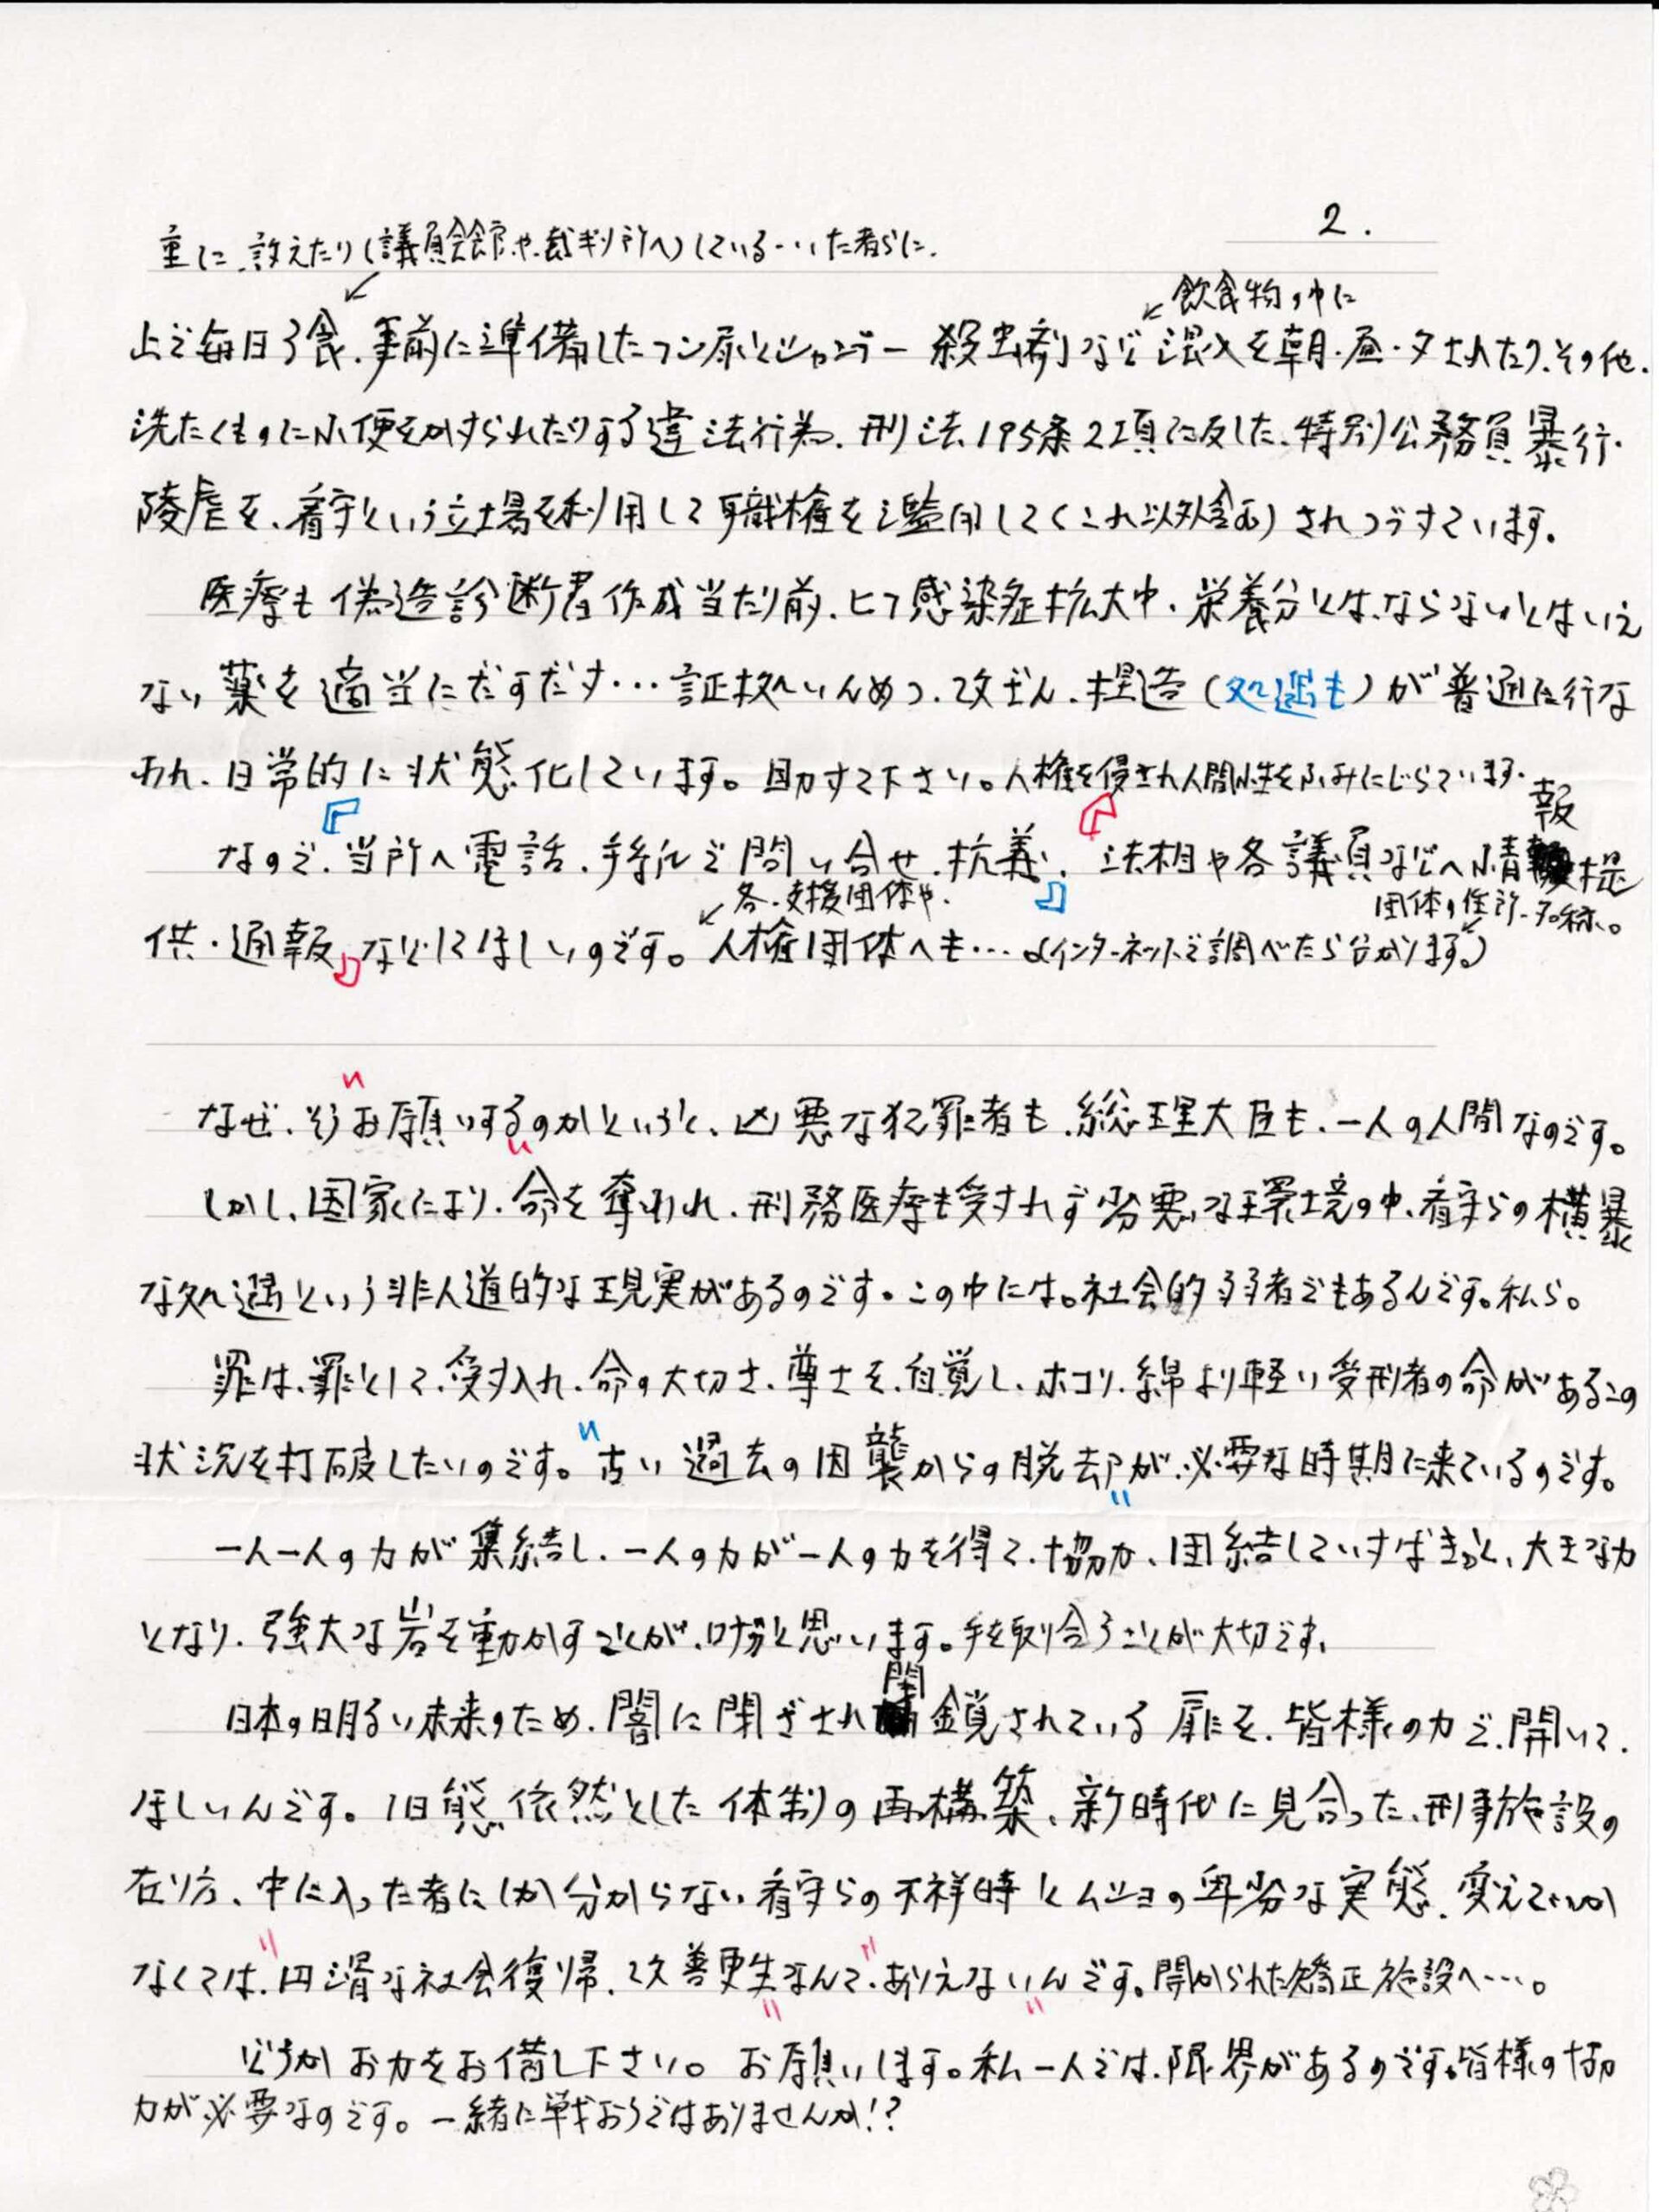 2.
重に、訴えたり(議員会館や、裁判所へ)している…いた者らに、
飲食物の中に
上で毎日3食、事前に準備したフン尿とシャンプー 殺虫剤など混入を朝・昼・夕されたり、その他、
洗たくものに小便をかけられたりする違法行為、刑法195条2項に反した、特別公務員暴行・
陵虐を、看守という立場を利用して職権を濫用して(これ以外含む)されつづけています。
医療も偽造診断書作成当たり前、ヒフ感染症拡大中、栄養分とは、ならないとはいえ
ない薬を適当にだすだす…証拠いんめつ、改ざん、捏造(処遇も)が普通に行な
われ、日常的に状態化しています。助けて下さい。人権を侵され人間性をふみにじらています。
報
なので、『当所へ電話、手紙で問い合せ、抗義』、『法相や各議員などへ情提
各、支援団体や、
団体の住所、名称。
供・通報』などしてほしいのです。人権団体へも…(インターネットで調べたら分かります。)
なぜ、そう"お願いする"のかというと、凶悪な犯罪者も、総理大臣も、一人の人間なのです。
しかし、国家により、命を奪われ、刑務医療も受けれず劣悪な環境の中、看守らの横暴
な処遇という非人道的な現実があるのです。この中には。社会的弱者でもあるんです。私ら。
罪は、罪として、受け入れ、命の大切さ、尊さを、自覚し、ホコリ、綿より軽い受刑者の命があるこの
状況を打破したいのです。"古い過去の因襲からの脱却"が、必要な時期に来ているのです。
一人一人の力が集結し、一人の力が一人の力を得て、協力、団結していけばきっと、大きな力
となり、強大な岩を動かすことが、叶うと思います。手を取り合うことが大切です。
閉
日本の明るい未来のため、闇に閉ざされ鎖されている扉を、皆様の力で、開いて、
ほしいんです。旧態依然とした体制の再構築、新時代に見合った、刑事施設の
在り方、中に入った者にしか分からない看守らの不祥時とムショの卑劣な実態、変えていか
なくては、"円滑な社会復帰、改善更生"なんて、"ありえない"んです。開かられた矯正施設へ…。
どうかお力をお借し下さい。お願いします。私一人では、限界があるのです。皆様の協
力が必要なのです。一緒に戦おうではありませんか!?